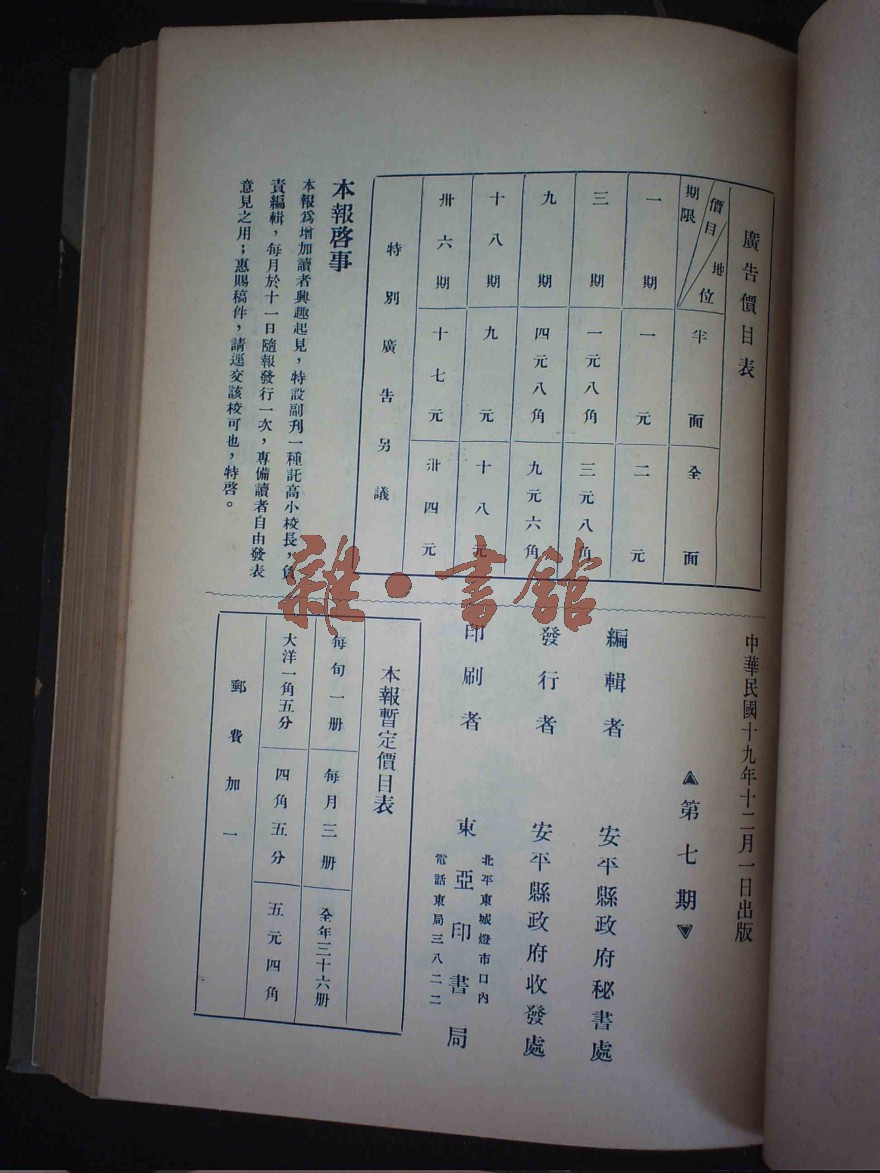 廣告價目表
價目 地位 期限
半面 全面
一期 一元 二元
三期 一元八角 三元八角
九期 四元八角 九元六角
十八期 九元 十八元
卅六期 十七元 卅四元
特別廣告另議
本報啓事
本報爲增加讀者興趣起見，特設副刋一種託高小校長，負
責編輯，每月於十一日隨報發行一次，專備讀者自由發表
意見之用；惠賜稿件，請逕交該校可也，特啓。
中華民國十九年十二月一日出版
第七期
編輯者 安平縣政府秘書處
發行者 安平縣政府收發處
印刷者 東亞印書局
北平東城燈市口內
電話東局三八二二
本報暫定價目表
每旬一册 每月三册 全年三十六册
大洋一角五分 四角五分 五元四角
郵費加一
雜·書館